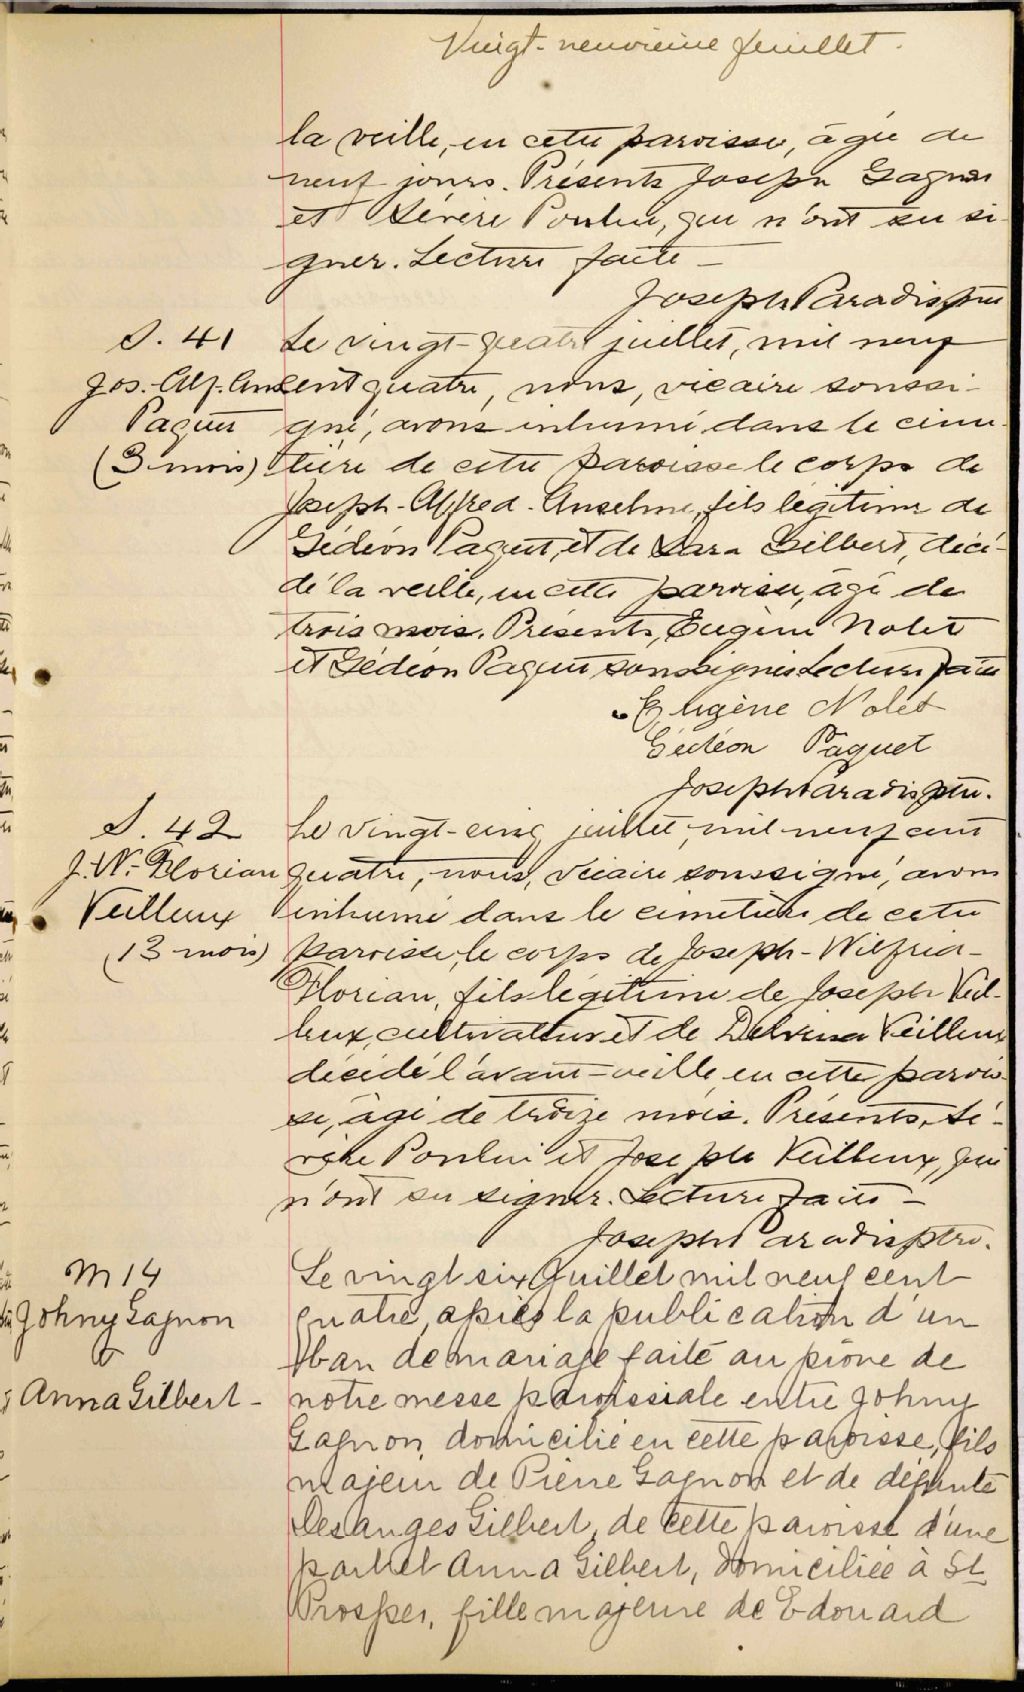 Vingt-neuvieme feuillet.
la veille, en cette paroisse, âgée de
neuf jours. Présents Joseph Gagnon
et Sévère Poulin, qui n'ont su si-
gner. Lecture faite —
Joseph Paradis ptre
S. 41
Jos.-Alf. Ans
Paquet
(3 mois)
Le vingt-quatre juillet, mil neuf
cent quatre, nous, vicaire soussi-
gné, avons inhumé dans le cime-
tière de cette paroisse le corps de
Joseph-Alfred-Anselme, fils légitime de
Gédéon Paquet, et de Sara Gilbert, décé-
dé la veille, en cette paroisse, âgé de
trois mois. Présents, Eugène Nolet
et Gédéon Paquet soussignés Lecture faite
Eugène Nolet
Gédéon Paquet
Joseph Paradis ptre.
S. 42
J.-W.-Florian
Veilleux
(13 mois)
Le vingt-cinq juillet, mil neuf cent
quatre, nous, vicaire soussigné, avons
inhumé dans le cimetière de cette
paroisse, le corps de Joseph-Wilfrid-
Florian, fils légitime de Joseph Veil-
leux, cultivateur et de Delvina Veilleux
décédé l'avant-veille, en cette parois-
se, âgé de treize mois. Présents, Sé-
vère Poulin et Joseph Veilleux, qui
n'ont su signer. Lecture faite —
Joseph Paradis ptre.
M 14
Johny Gagnon
&
Anna Gilbert -
Le vingt six Juillet mil neuf cent
quatre, après la publication d'un
ban de mariage faite au prône de
notre messe paroissiale entre Johny
Gagnon, domicilié en cette paroisse, fils
majeur de Pierre Gagnon et de défunte
Desanges Gilbert, de cette paroisse d'une
part et Anna Gilbert, domiciliée à St
Prosper, fille majeure de Edouard